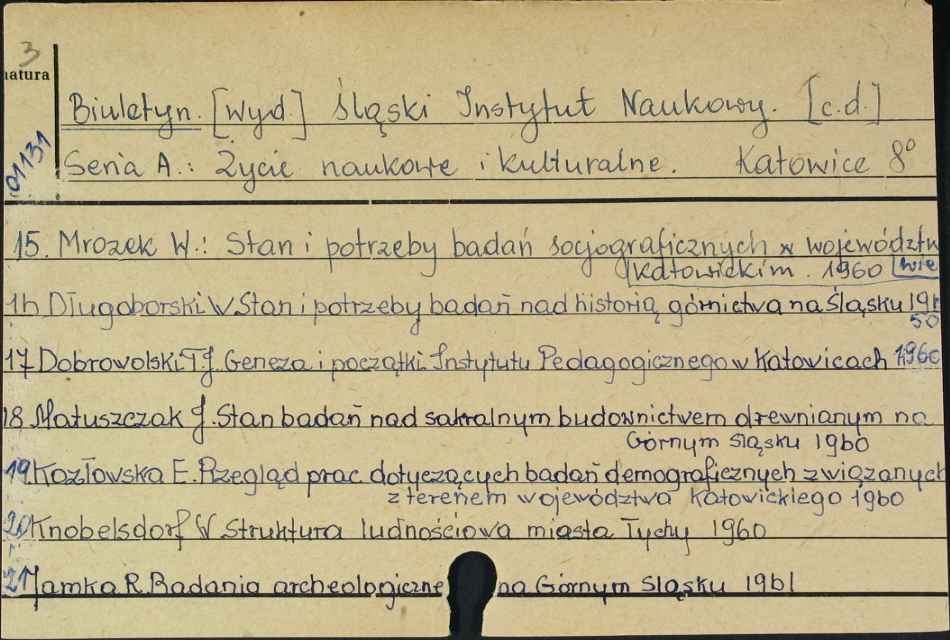 3
natura
Biuletyn. [Wyd.] Śląski Instytut Naukowy. [c.d.]
01131
Seria A.: Życie naukowe i kulturalne. Katowice 8°
15. Mrozek W.: Stan i potrzeby badań socjograficznych w województwie
katowickim. 1960
16 Długoborski W Stan i potrzeby badań nad historią górnictwa na Śląsku 19
60
17 Dobrowolski T.J. Geneza i początki Instytutu Pedagogicznego w Katowicach 1960
18 Matuszczak J. Stan badań nad sakralnym budownictwem drewnianym na
Górnym Śląsku 1960
19 Kozłowska E. Przegląd prac dotyczących badań demograficznych związanych
z terenem województwa Katowickiego 1960
20 Knobelsdorf W Struktura ludnościowa miasta Tychy 1960
21 Jamka R. Badania archeologiczne na Górnym Śląsku 1961